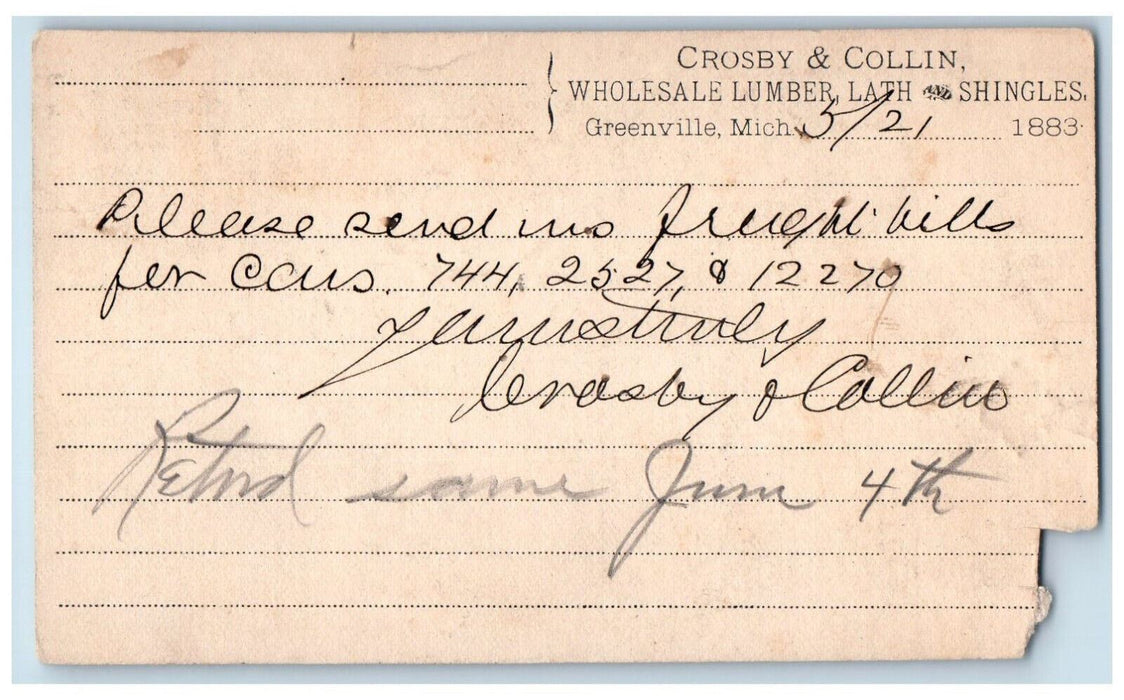 CROSBY & COLLIN,
WHOLESALE LUMBER, LATH AND SHINGLES.
Greenville, Mich. 5/21 1883
Please send us freight bills
for cars. 744, 2527, & 12270
Yours truly
Crosby & Collin
Retnd same June 4th